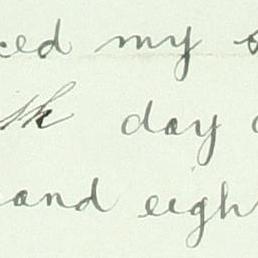 ced my s
th day o
and eigh